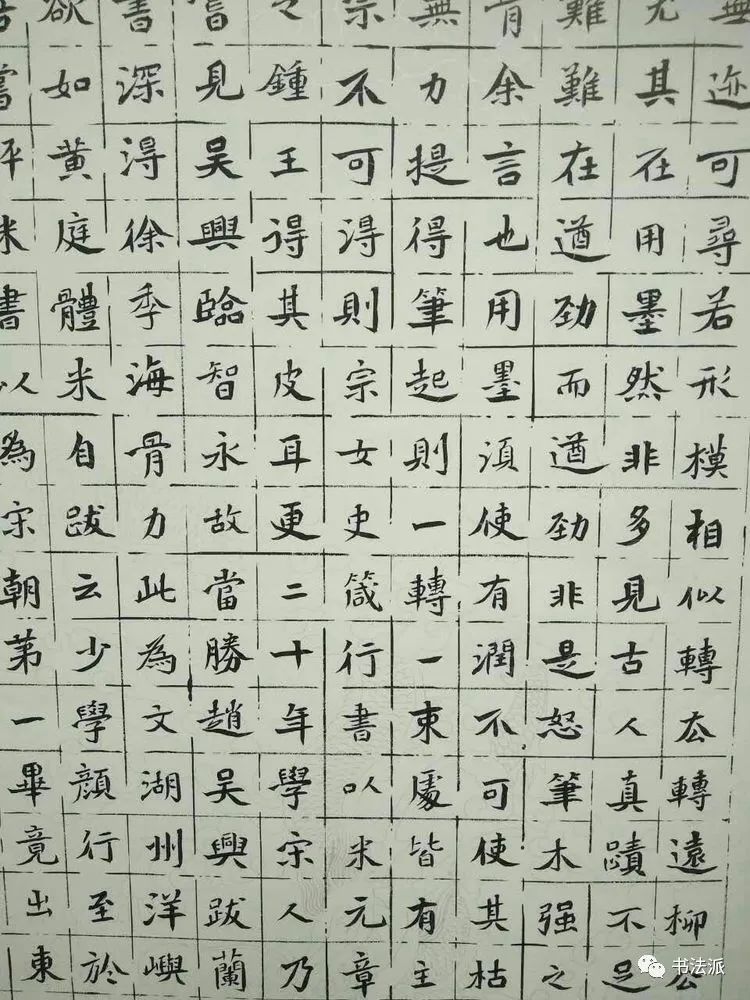 無迹可尋若形模相似轉去轉遠柳公
尤其在用墨然非多見古人真蹟不足
難難在遒勁而遒勁非是怒筆木强之
肯余言也用墨須使有潤不可使其枯
無力提得筆起則一轉一束處皆有主
宗不可得則宗女史箴行書以米元章
之鍾王得其皮耳更二十年學宋人乃
嘗見吳興臨智永故當勝趙吳興跋蘭
書深得徐季海骨力此為文湖州洋嶼
欲如黄庭體米自跋云少學顏行至於
嘗評米書以為宋朝第一畢竟出東
书法派